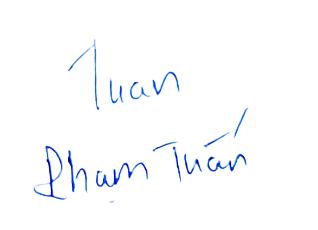 Tuan
Pham Tuấn